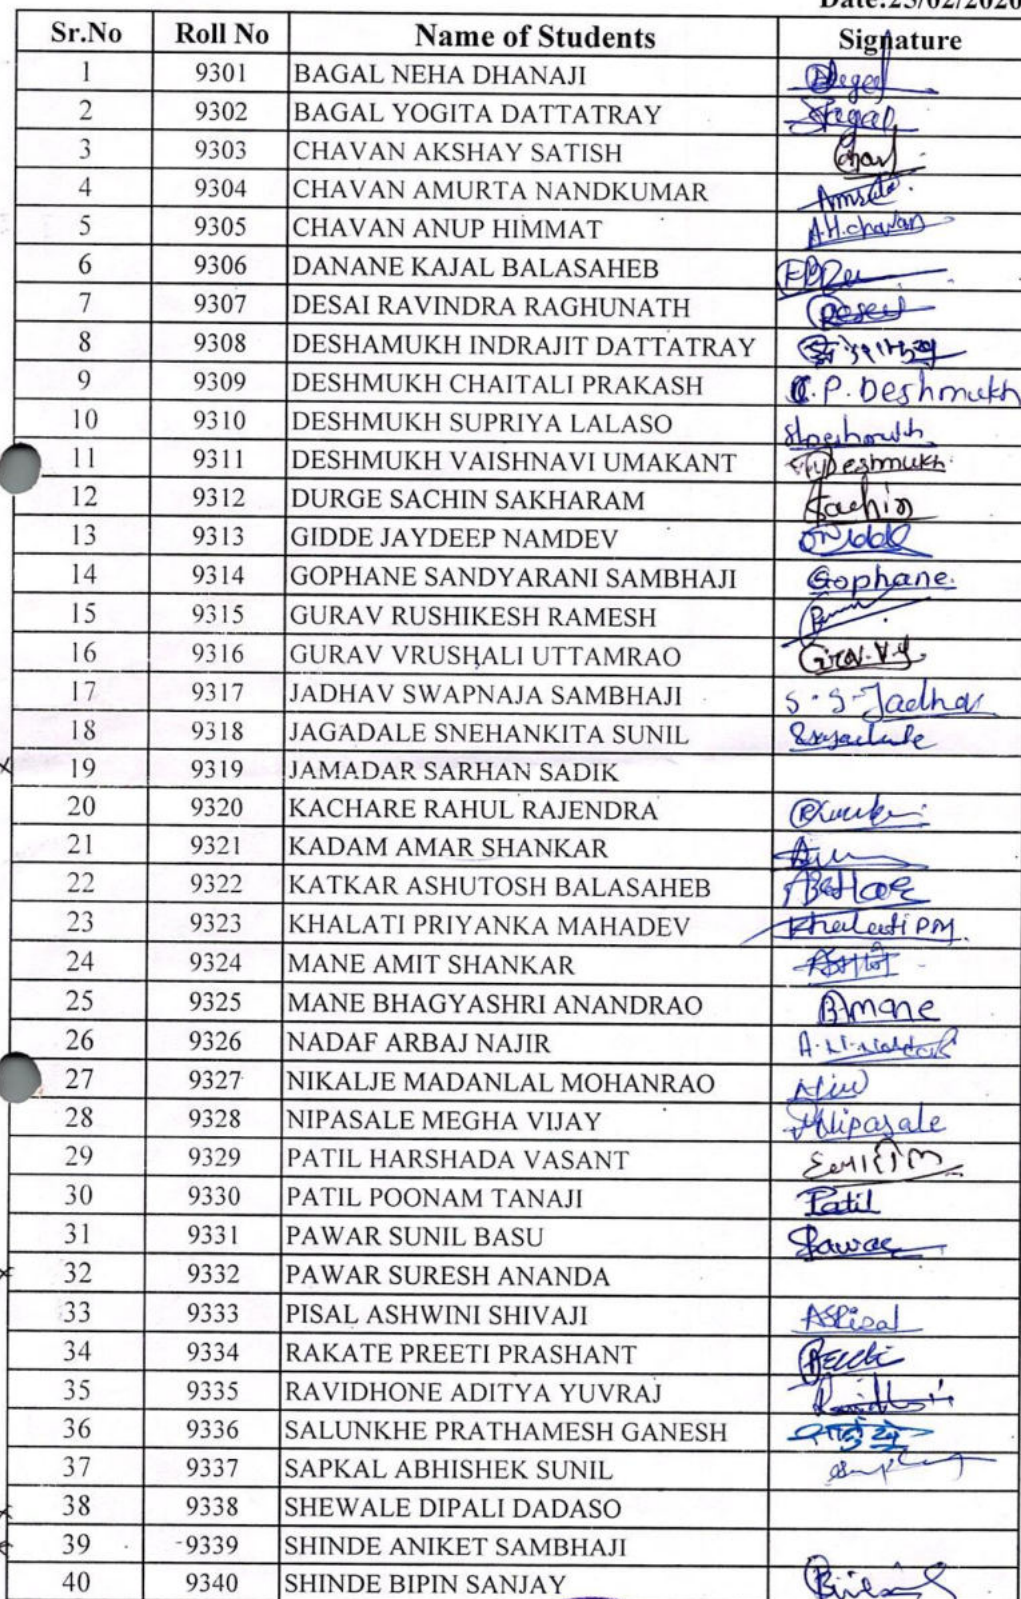 Date:25/02/2020
Sr.No Roll No Name of Students Signature
1 9301 BAGAL NEHA DHANAJI
2 9302 BAGAL YOGITA DATTATRAY
3 9303 CHAVAN AKSHAY SATISH
4 9304 CHAVAN AMURTA NANDKUMAR
5 9305 CHAVAN ANUP HIMMAT A.H.chavan
6 9306 DANANE KAJAL BALASAHEB
7 9307 DESAI RAVINDRA RAGHUNATH
8 9308 DESHAMUKH INDRAJIT DATTATRAY
9 9309 DESHMUKH CHAITALI PRAKASH C.P.Deshmukh
10 9310 DESHMUKH SUPRIYA LALASO
11 9311 DESHMUKH VAISHNAVI UMAKANT Deshmukh
12 9312 DURGE SACHIN SAKHARAM Sachin
13 9313 GIDDE JAYDEEP NAMDEV
14 9314 GOPHANE SANDYARANI SAMBHAJI Gophane.
15 9315 GURAV RUSHIKESH RAMESH
16 9316 GURAV VRUSHALI UTTAMRAO
17 9317 JADHAV SWAPNAJA SAMBHAJI S.S.Jadhav
18 9318 JAGADALE SNEHANKITA SUNIL
19 9319 JAMADAR SARHAN SADIK
20 9320 KACHARE RAHUL RAJENDRA
21 9321 KADAM AMAR SHANKAR
22 9322 KATKAR ASHUTOSH BALASAHEB
23 9323 KHALATI PRIYANKA MAHADEV Khalati PM.
24 9324 MANE AMIT SHANKAR
25 9325 MANE BHAGYASHRI ANANDRAO BAmane
26 9326 NADAF ARBAJ NAJIR
27 9327 NIKALJE MADANLAL MOHANRAO
28 9328 NIPASALE MEGHA VIJAY Nipasale
29 9329 PATIL HARSHADA VASANT
30 9330 PATIL POONAM TANAJI Patil
31 9331 PAWAR SUNIL BASU Pawar
32 9332 PAWAR SURESH ANANDA
33 9333 PISAL ASHWINI SHIVAJI ASPisal
34 9334 RAKATE PREETI PRASHANT
35 9335 RAVIDHONE ADITYA YUVRAJ
36 9336 SALUNKHE PRATHAMESH GANESH
37 9337 SAPKAL ABHISHEK SUNIL
38 9338 SHEWALE DIPALI DADASO
39 9339 SHINDE ANIKET SAMBHAJI
40 9340 SHINDE BIPIN SANJAY